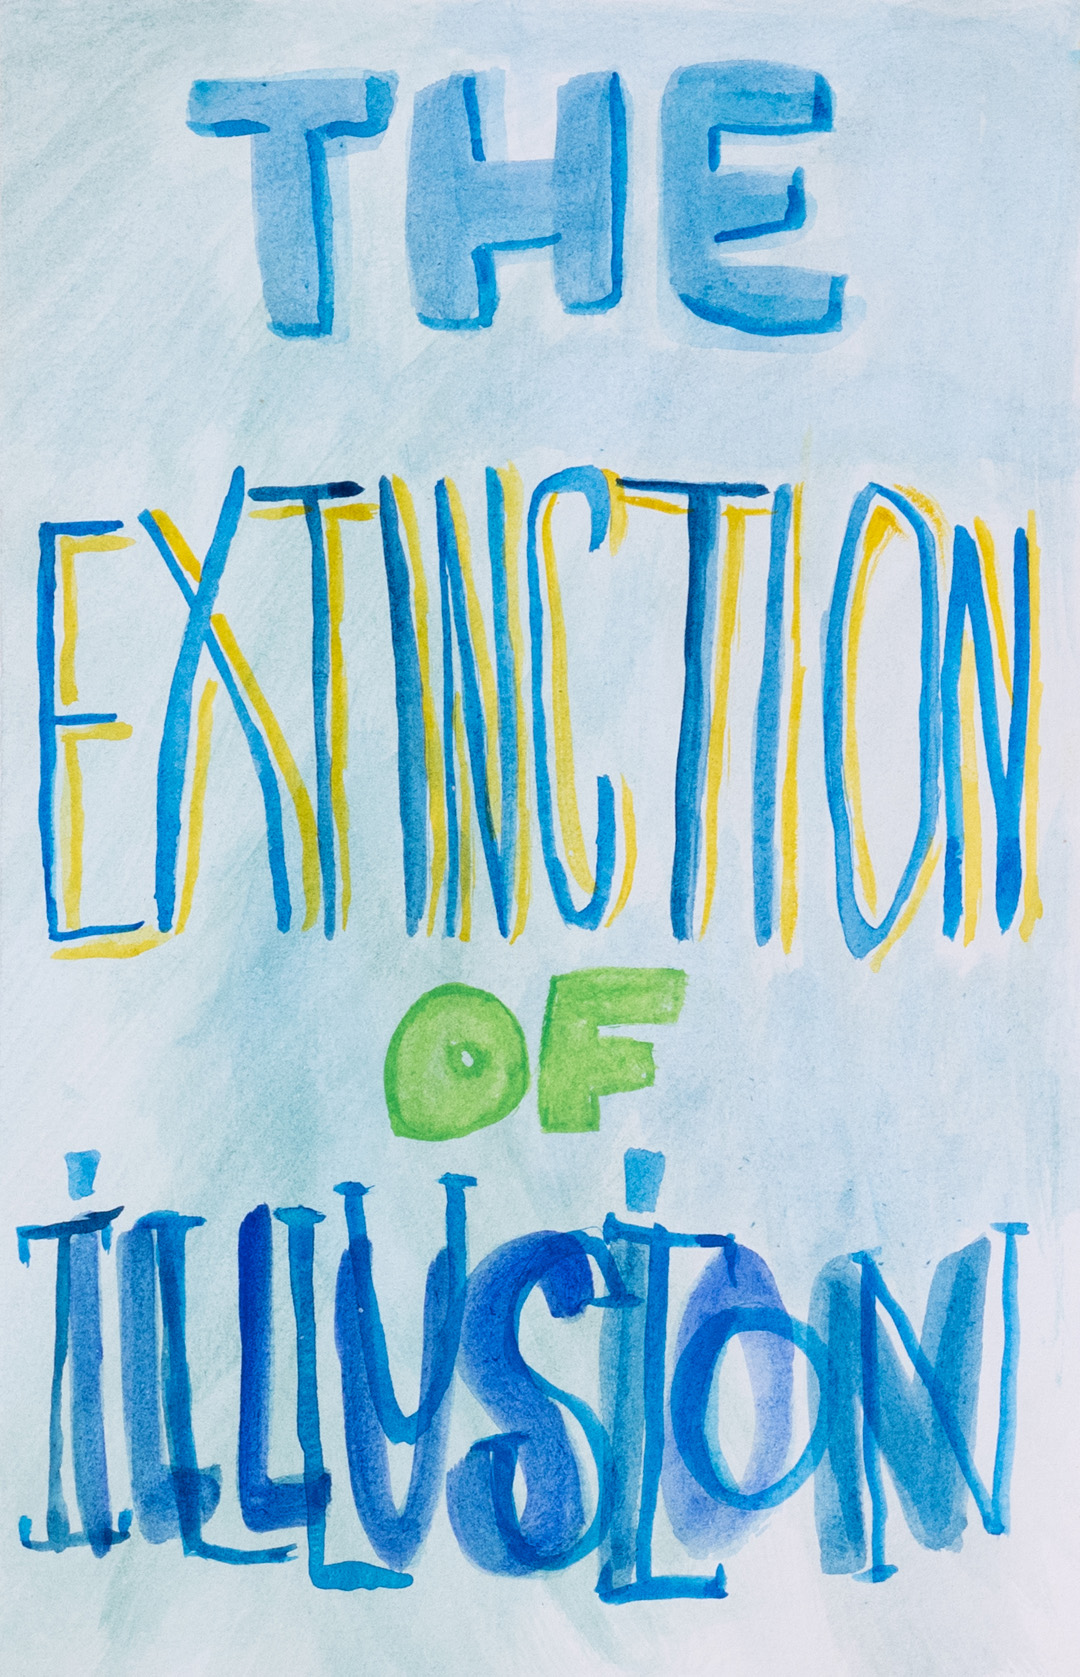 THE
EXTINCTION
OF
iLLUSiON